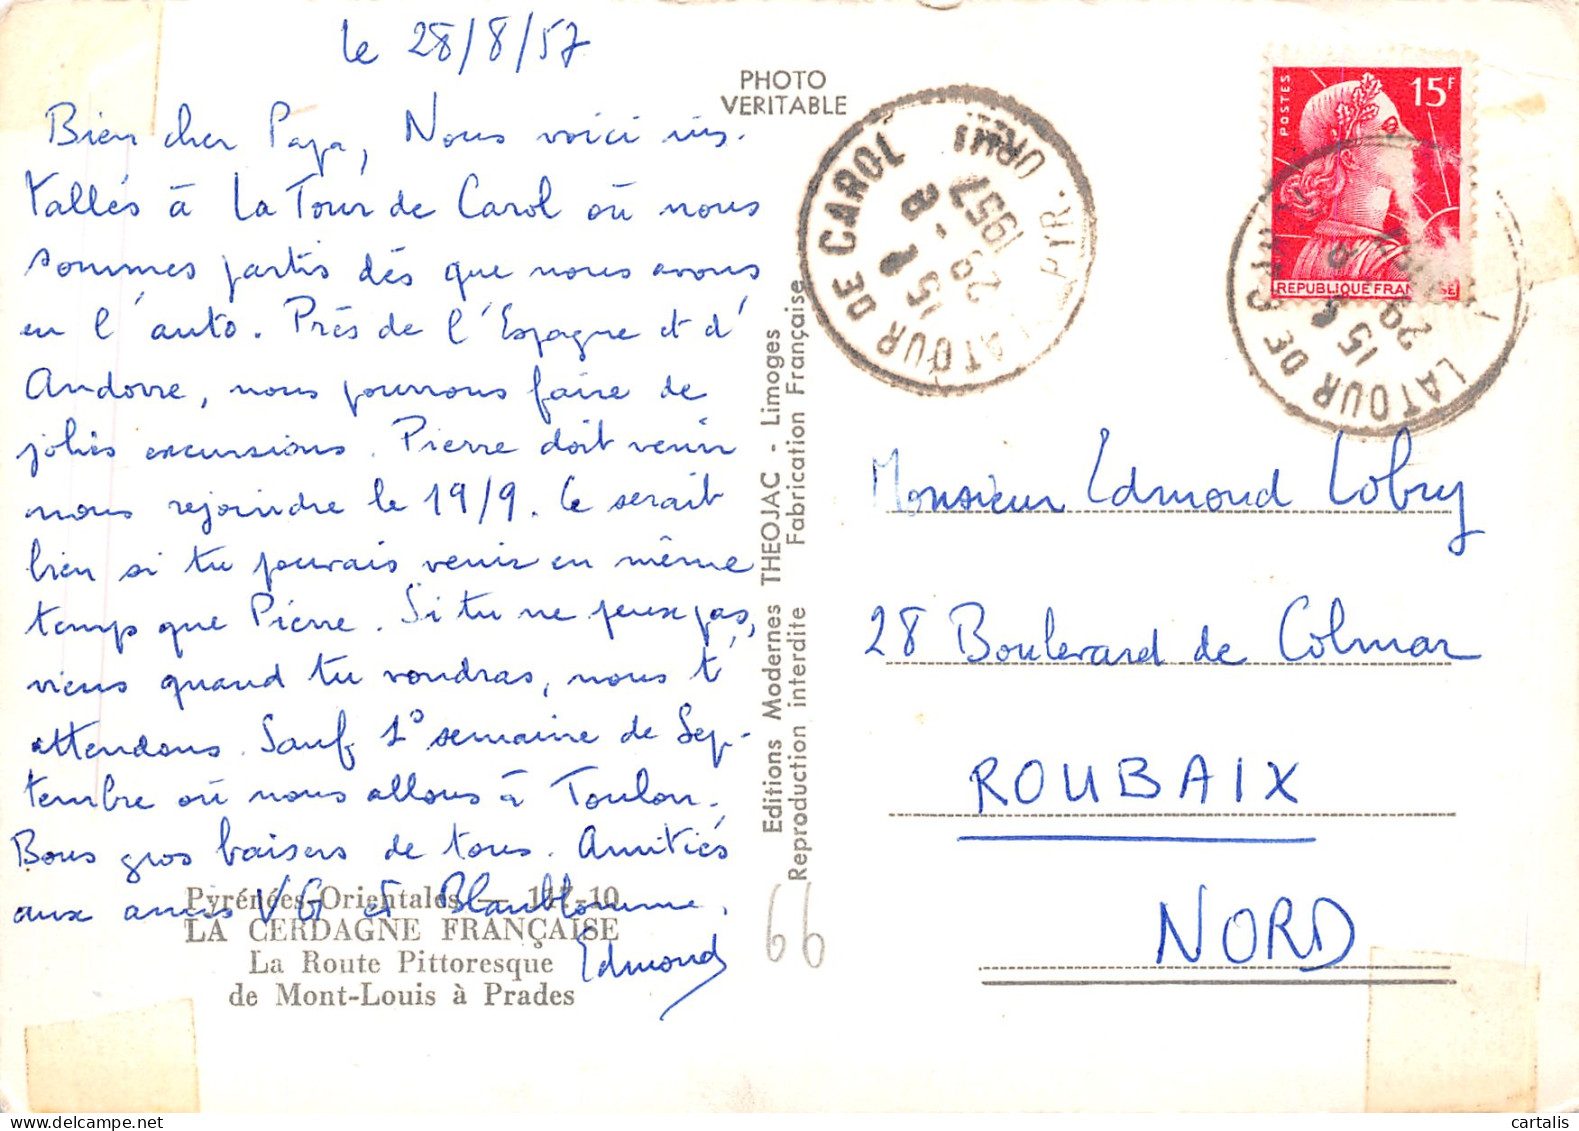 le 28/8/57
Bien cher Papa, Nous voici ins-
tallés à La Tour de Carol où nous
sommes partis dès que nous avons
eu l'auto. Près de l'Espagne et d'
Andorre, nous pourrons faire de
jolies excursions. Pierre doit venir
nous rejoindre le 19/9. Ce serait
bien si tu pouvais venir en même
temps que Pierre. Si tu ne peux pas,
viens quand tu voudras, nous t'
attendons. Sauf 1° semaine de Sep-
tembre où nous allons à Toulon.
Bons gros baisers de tous. Amitiés
aux amis VG et Blaublomme.
Edmond
Pyrénées-Orientales — 117-10
LA CERDAGNE FRANÇAISE
La Route Pittoresque
de Mont-Louis à Prades
PHOTO
VERITABLE
Editions Modernes THEOJAC - Limoges
Reproduction interdite Fabrication Française
66
LATOUR DE CAROL PYR. ORIENT
15
29 - 8
1957
POSTES
15F
REPUBLIQUE FRANÇAISE
LATOUR DE CAROL
15
29
Monsieur Edmond Lobry
28 Boulevard de Colmar
ROUBAIX
NORD
cartalis
delcampe.net